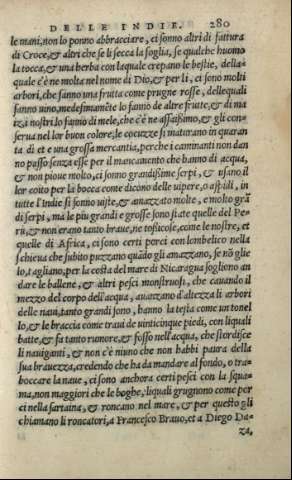 DELLE INDIE. 280
le mani, non lo ponno abbracciare, ci sonno altri di fattura
di Croce, & altri che se li secca la foglia, se qualche huomo
la tocca, & una herba con laquale crepano le bestie, della-
quale c'è ne molta nel nome di Dio, & per li, ci sono molti
arbori, che fanno una frutta come prugne rosse, dellequali
fanno uino, medesimamẽte lo fanno de altre frutte, & di ma
iz, i nostri lo fanno di mele, che c'è ne assaissimo, & gli con-
serua nel lor buon colore, le cocuzze si maturano in quaran
ta di et e una grossa mercantia, perche i caminanti non dan
no passo senza esse per il mancamento che hanno di acqua,
& non pioue molto, ci sonno grandissime serpi, & usano il
lor coito per la bocca come dicono delle uipere, o aspidi, in
tutte l'Indie si sonno uiste, & amazzato molte, e molto grã
di serpi, ma le piu grandi e grosse sono state quelle del Pe-
rù, & non erano tanto braue, ne tosicose, come le nostre, et
quelle di Africa, ci sono certi porci con lombelico nella
schieua che subito puzzano quãdo gli amazzano, se nõ glie
lo, tagliano, per la costa del mare di Nicaragua sogliono an
dare le ballene, & altri pesci monstruosi, che cauando il
mezzo del corpo dell'acqua, auanzano d'altezza li arbori
delle naui, tanto grandi sono, hanno la testa come un tonel
lo, & le braccia come traui de uinticinque piedi, con liquali
batte, & fa tanto rumore, & fosso nell'acqua, che stordisce
li nauiganti, & non c'è niuno che non habbi paura della
sua brauezza, credendo che ha da mandare al fondo, o tra-
boccare la naue, ci sono anchora certi pesci con la squa-
ma, non maggiori che le boghe, liquali grugnono come por
ci nella sartaina, & roncano nel mare, & per questo gli
chiamano li roncatori, a Francesco Brauo, et a Diego Da-
za,